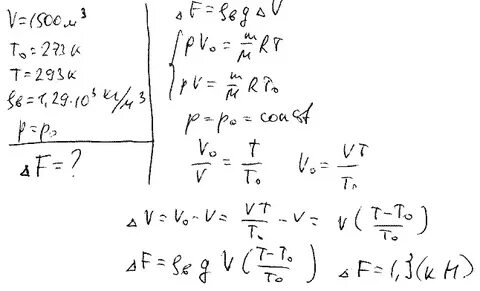 V=1500м³
T₀=273к
T=293к
ρв=1,29·10³ кг/м³
p=p₀
ΔF=?
ΔF=ρв g ΔV
pV₀ = m/M RT
pV = m/M RT₀
p=p₀=const
V₀/V = T/T₀ V₀ = VT/T₀
ΔV=V₀-V= VT/T₀ -V= V(T-T₀/T₀)
ΔF=ρв g V(T-T₀/T₀) ΔF=1,3(кН)